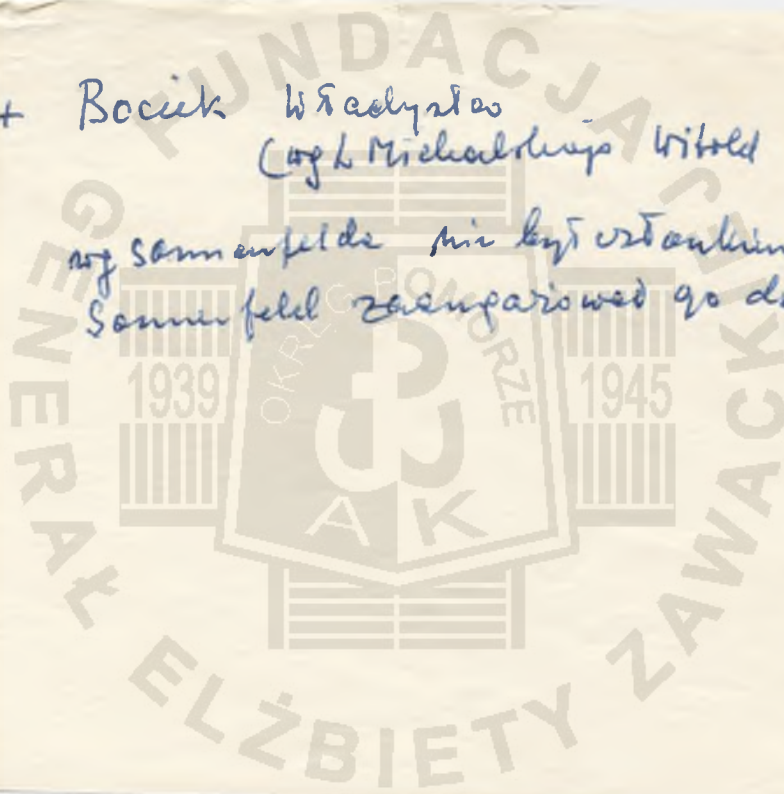 + Bociek Władysław
(wg L Michalskiego Witold
wg Sonnenfelda nie był członkiem
Sonnenfeld zaangażował go do
FUNDACJA GENERAŁ ELŻBIETY ZAWACKIEJ
OKRĘG POMORZE
1939 1945
AK